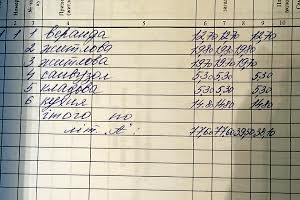 2 3 4 5 6 7 8 9 10
1 1 1 веранда 12,70 12,70 12,70
2 житлова 19,80 19,80 19,80
3 житлова 19,70 19,70 19,70
4 санвузол 5,30 5,30 5,30
5 кладова 5,30 5,30 5,30
6 кухня 14,80 14,80 14,80
Ітого по
літ. "А":